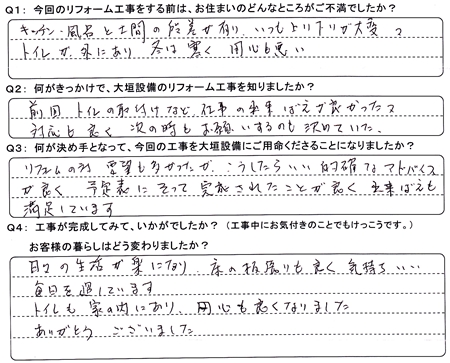 Q1: 今回のリフォーム工事をする前は、お住まいのどんなところがご不満でしたか？
キッチン・風呂と土間の段差が有り いつも上り下りが大変で
トイレが外にあり 冬は寒く 用心も悪い
Q2: 何がきっかけで、大垣設備のリフォーム工事を知りましたか？
前回 トイレの取付けなど 仕事の出来ばえが良かったで
対応も良く 次の時もお願いするのも決めていた。
Q3: 何が決め手となって、今回の工事を大垣設備にご用命くださることになりましたか？
リフォームの時 要望も多かったが こうしたらいい的確なアドバイス
が良く 予定表にそって実施されたことが良く 出来ばえも
満足しています
Q4: 工事が完成してみて、いかがでしたか？（工事中にお気付きのことでもけっこうです。）
お客様の暮らしはどう変わりましたか？
日々の生活が楽になり 床の板張りも良く 気持ちいい
毎日を過しています
トイレも家の内にあり、用心も良くなりました
ありがとう ございました